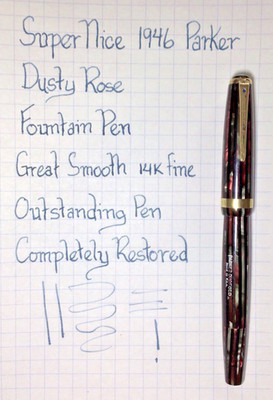 Super Nice 1946 Parker
Dusty Rose
Fountain Pen
Great Smooth 14K fine
Outstanding Pen
Completely Restored